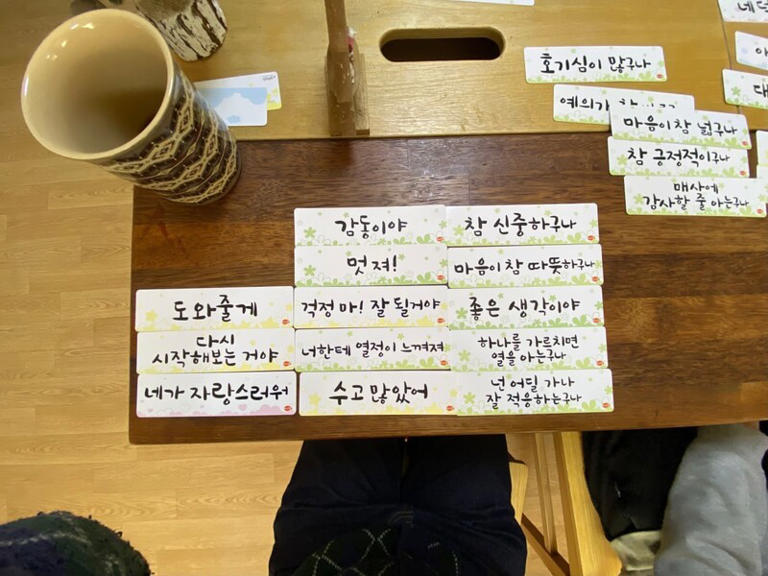 호기심이 많구나
예의가
마음이 참 넓구나
참 긍정적이구나
매사에
감사할 줄 아는구나
감동이야
참 신중하구나
멋져!
마음이 참 따뜻하구나
도와줄게
걱정 마! 잘 될거야
좋은 생각이야
다시
시작해보는 거야
너한테 열정이 느껴져
하나를 가르치면
열을 아는구나
네가 자랑스러워
수고 많았어
넌 어딜 가나
잘 적응하는구나